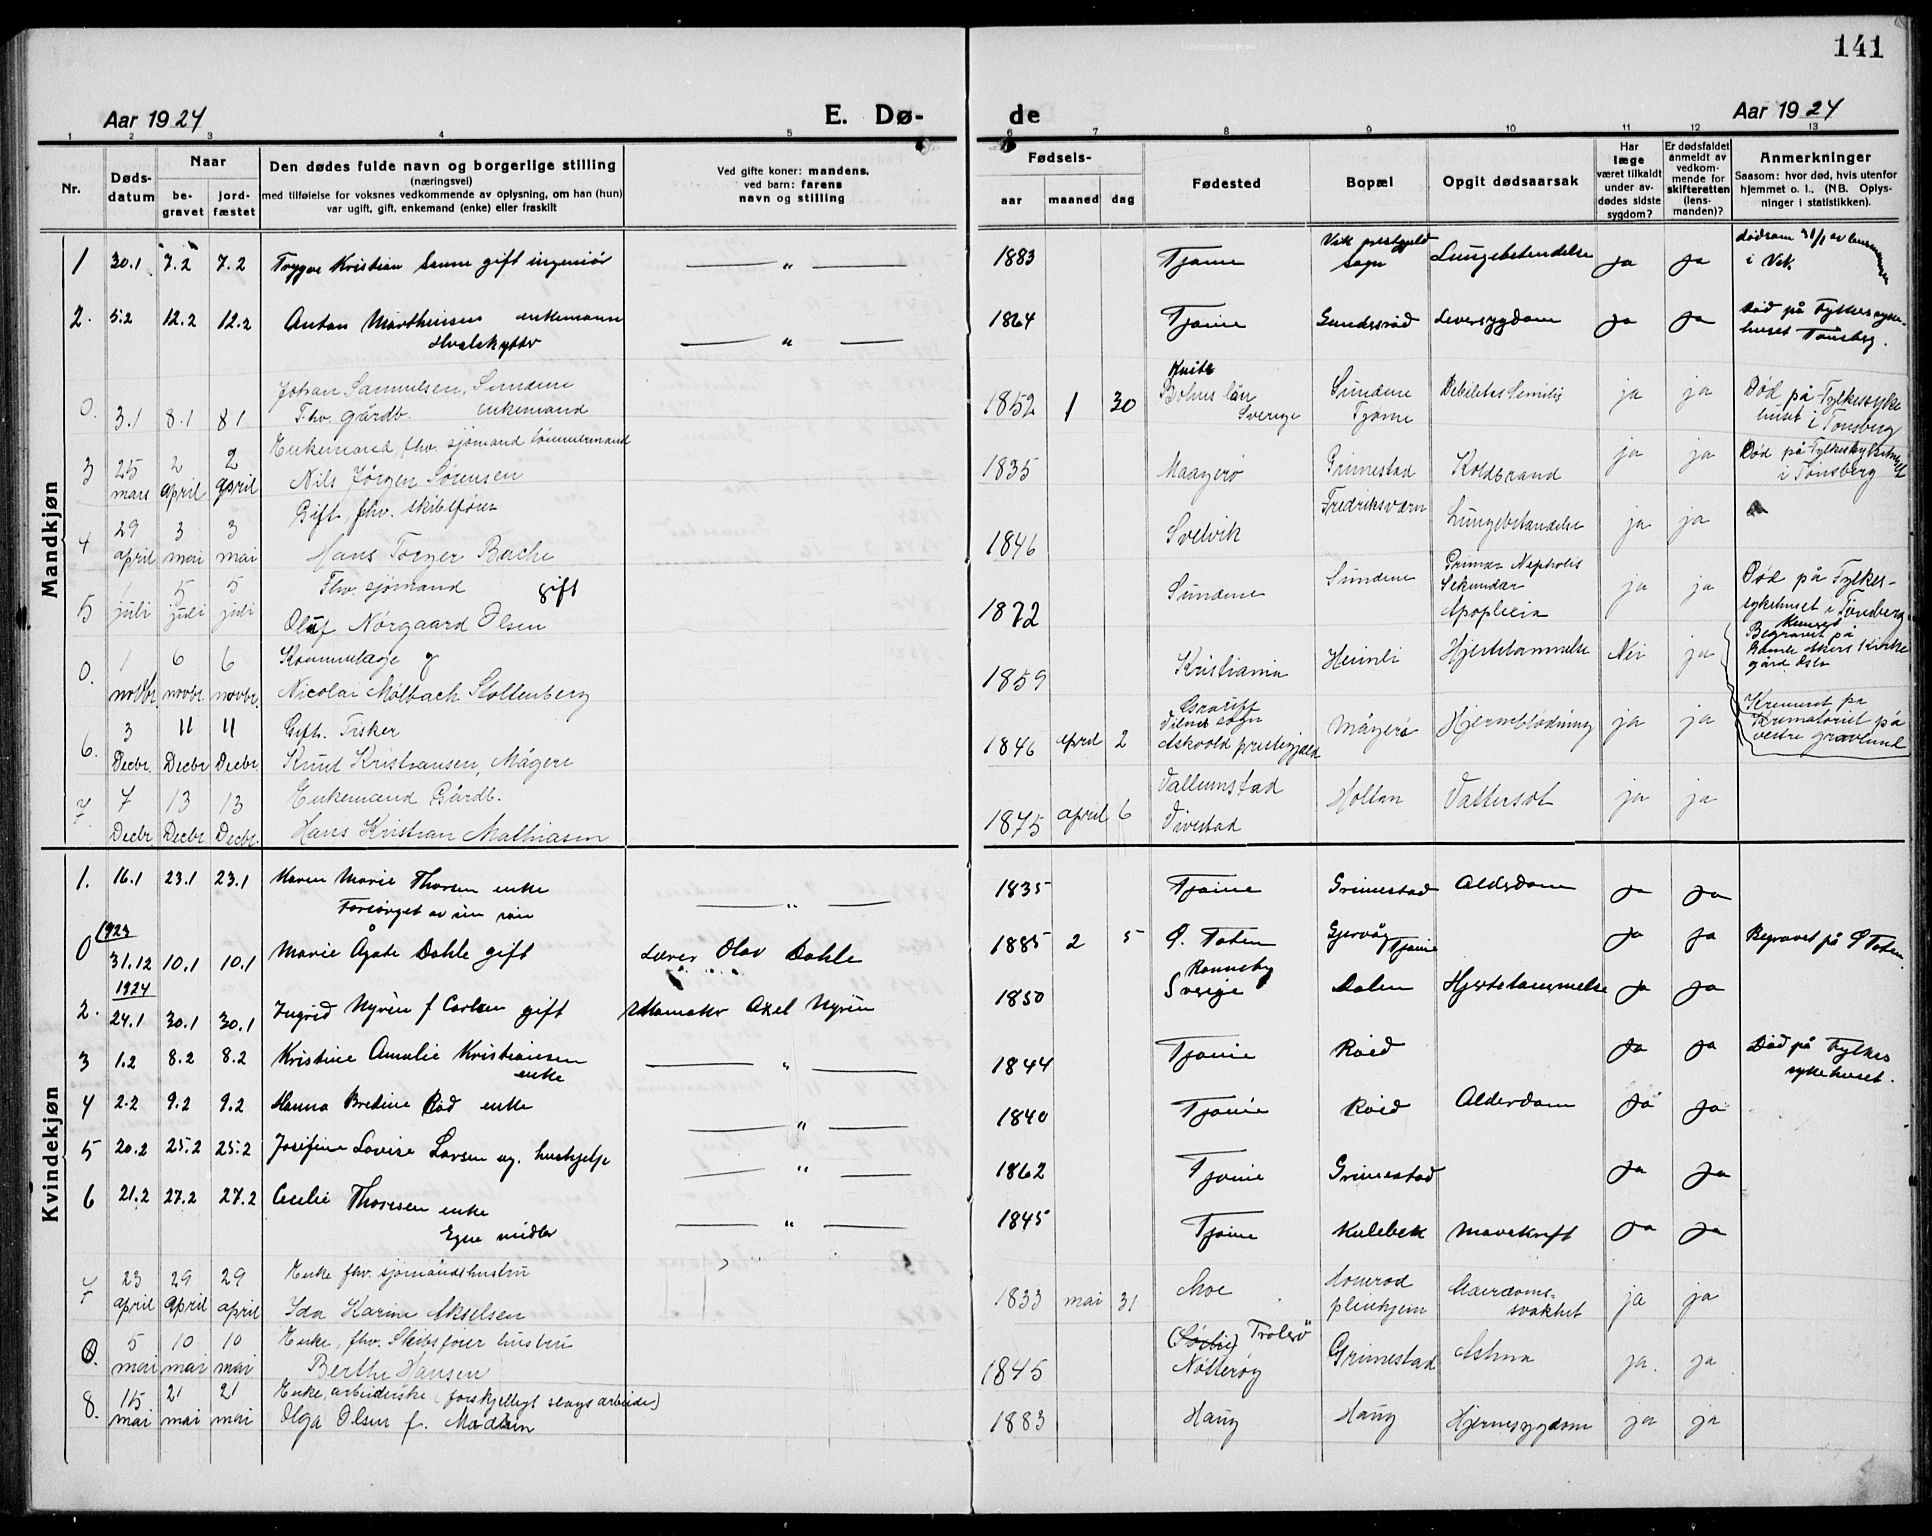 141
Aar 1924 E. Dø- de Aar 1924
1 2 3 4 5 6 7 8 9 10 11 12 13
Nr. Døds-datum Naar be-gravet jord-fæstet Den dødes fulde navn og borgerlige stilling (næringsvei) med tilføielse for voksnes vedkommende av oplysning, om han (hun) var ugift, gift, enkemand (enke) eller fraskilt Ved gifte koner: mandens, ved barn: farens navn og stilling Fødsels- aar maaned dag Fødested Bopæl Opgit dødsaarsak Har læge været tilkaldt under av-dødes sidste sygdom? Er dødsfaldet anmeldt av vedkom-mende for skifteretten (lens-manden)? Anmerkninger Saasom: hvor død, hvis utenfor hjemmet o. l., (NB. Oplys-ninger i statistikken).
Mandkjøn
1 30.1 7.2 7.2 Trygve Kristian Sanne gift ingeniør — " — 1883 Tjøme Vik prestgjeld Sogn Lungebetendelse ja ja i Vik.
2. 5.2 12.2 12.2 Anton Marthinsen enkemann Hvalskytter — " — 1864 Tjøme Gunderød Leversygdom ja ja Død på Fylkessyke-huset Tønsberg.
0. 3.1 8.1 8.1 Johan Samuelsen, Sundene Fhv. gårdb. enkemand 1852 1 30 Bohus län Sverige Sundene Tjøme Debilitas Senilis ja ja Død på Fylkessyke huset i Tønsberg
3 25 mars 2 april 2 april Enkemand, fhv. sjømand tømmermand Nils Jørgen Sørensen 1835 Maagerø Grimestad Koldbrand ja ja Død på Fylkessykehuset i Tønsberg
4 29 april 3 mai 3 mai Gift, fhv. skibsfører Hans Torger Bache 1846 Svelvik Fredriksværn Lungebetændelse ja ja
5 1 juli 5 juli 5 juli Fhv. sjømand gift Oluf Nørgaard Olsen 1872 Sundene Sundene Primær Nephritis Sekundær Apoplexia ja ja Død på Fylkes-sykehuset i Tønsberg
0. 1 novbr. 6 novbr. 6 novbr. Nicolai Mølbach Stoltenberg 1859 Kristiania Heimli Hjertelammelse Nei ja Begravet på Gamle Akers Kirke gård Oslo
6. 3 Decbr. 11 Decbr. 11 Decbr. Gift. Fisker Knut Kristiansen, Mågerø 1846 april 2 sogn Askvold prestegjeld Mågerø Hjerneblødning ja ja Kremeret på Krematoriet på vestre gravlund
7. 7 Decbr. 13 Decbr. 13 Decbr. Enkemand Gårdb. Hans Kristian Mathiasen 1875 april 6 Vallumstad Holtan Vattersot ja ja
Kvindekjøn
1. 16.1 23.1 23.1 Karen Marie Thorsen enke Forsørget av sin søn — " — 1835 Tjøme Grimestad Alderdom ja ja
0 1923 31.12 10.1 10.1 Marie Ågate Dahle gift Lærer Olav Dahle 1885 2 5 Ø. Toten Gjervåg Tjøme ja ja Begravet på Ø Toten.
1924
2. 24.1 30.1 30.1 Ingrid Nyrén f Carlsen gift Axel Nyrén 1850 Ronneby Sverige Dalen Hjertelammelse ja ja
3 1.2 8.2 8.2 Kristine Amalie Kristiansen enke — " — 1844 Tjøme Røed ja ja Død på Fylkes sykehuset.
4 2.2 9.2 9.2 Hanna Bredine Rød enke — " — 1840 Tjøme Røed Alderdom ja ja
5 20.2 25.2 25.2 Josefine Lovise Larsen ug. hushjelp — " — 1862 Tjøme Grimestad ja ja
6 21.2 27.2 27.2 Cecilie Thoresen enke Egne midler — " — 1845 Tjøme Kulebek Mavekreft ja ja
7 23 april 29 april 29 april Enke fhv. sjømandshustru Ida Karine Akselsen 1833 mai 31 Moe pleiehjem Alderdoms-svakhet ja ja
0. 5 mai 10 mai 10 mai Enke, fhv. Skibsfører hustru Berthe Hansen 1845 Nøtterøy Grimestad Astma ja. ja
8. 15 mai 21 mai 21 mai Enke, arbeiderske (forskjelligt slags arbeide) Olga Olsen f. Madsen 1883 Haug Haug Hjernesygdom ja ja